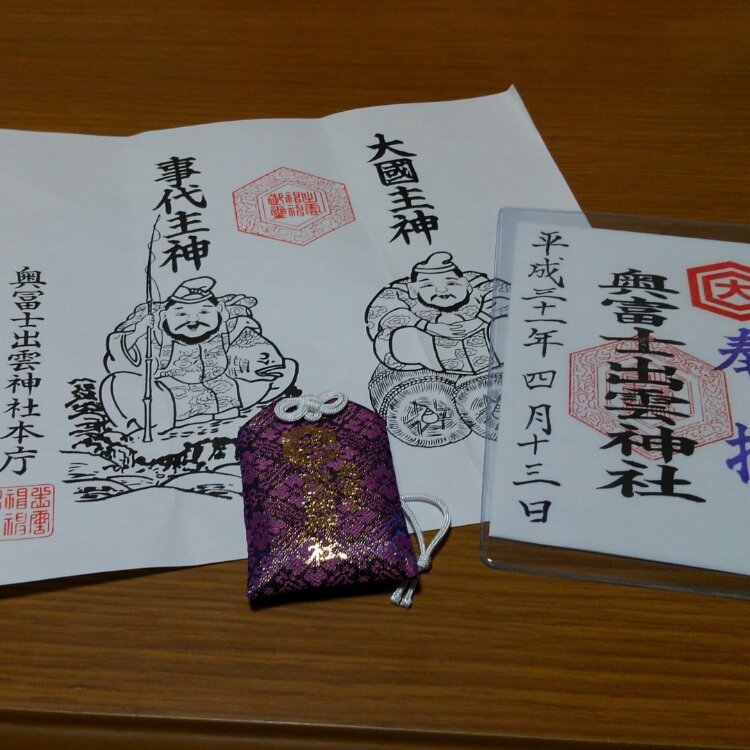 大國主神
事代主神
奥富士出雲神社本庁
社
大
奉拝
奥富士出雲神社
平成三十一年四月十三日